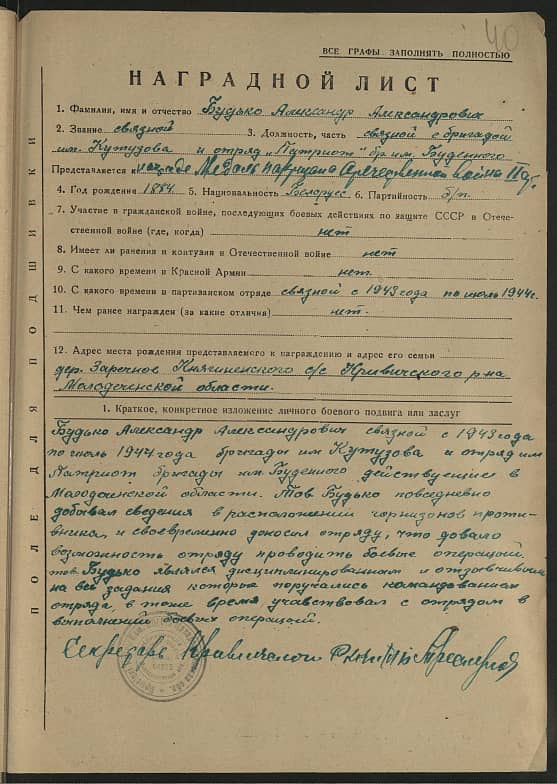 40
ВСЕ ГРАФЫ ЗАПОЛНЯТЬ ПОЛНОСТЬЮ
НАГРАДНОЙ ЛИСТ
1. Фамилия, имя и отчество Будько Александр Александрович
2. Звание связной 3. Должность, часть связной с бригадой
им. Кутузова и отряд „Патриот" бр им. Буденного
Представляется к Медаль партизана Отечественной войны II
4. Год рождения 1884 5. Национальность Белорус 6. Партийность б/п
7. Участие в гражданской войне, последующих боевых действиях по защите СССР в Отече-
ственной войне (где, когда) нет
8. Имеет ли ранения и контузии в Отечественной войне нет
9. С какого времени в Красной Армии нет
10. С какого времени в партизанском отряде связной с 1943 года по июль 1944г.
11. Чем ранее награжден (за какие отличия) нет.
12. Адрес места рождения представляемого к награждению и адрес его семьи
дер. Заречное Княгиненского с/с Кривичского р-на
Молодеченской области.
1. Краткое, конкретное изложение личного боевого подвига или заслуг
Будько Александр Александрович связной с 1943 года
по июль 1944 года бригады им Кутузова и отряд им
Патриот бригады им. Буденного действующие в
Молодеченской области. Тов Будько повседневно
добывал сведения в расположении горнизонов проти-
вника, и своевременно доносил отряду, что довало
возможность отряду проводить боевые операций.
тов. Будько являлся дисциплинированным и отзывчивым
на все задания которые поручались командованием
отряда, в тоже время учавствовал с отрядом в
выполнении боевых операций.
Секретарь Кривичского
ПОЛЕ ДЛЯ ПОДШИВКИ